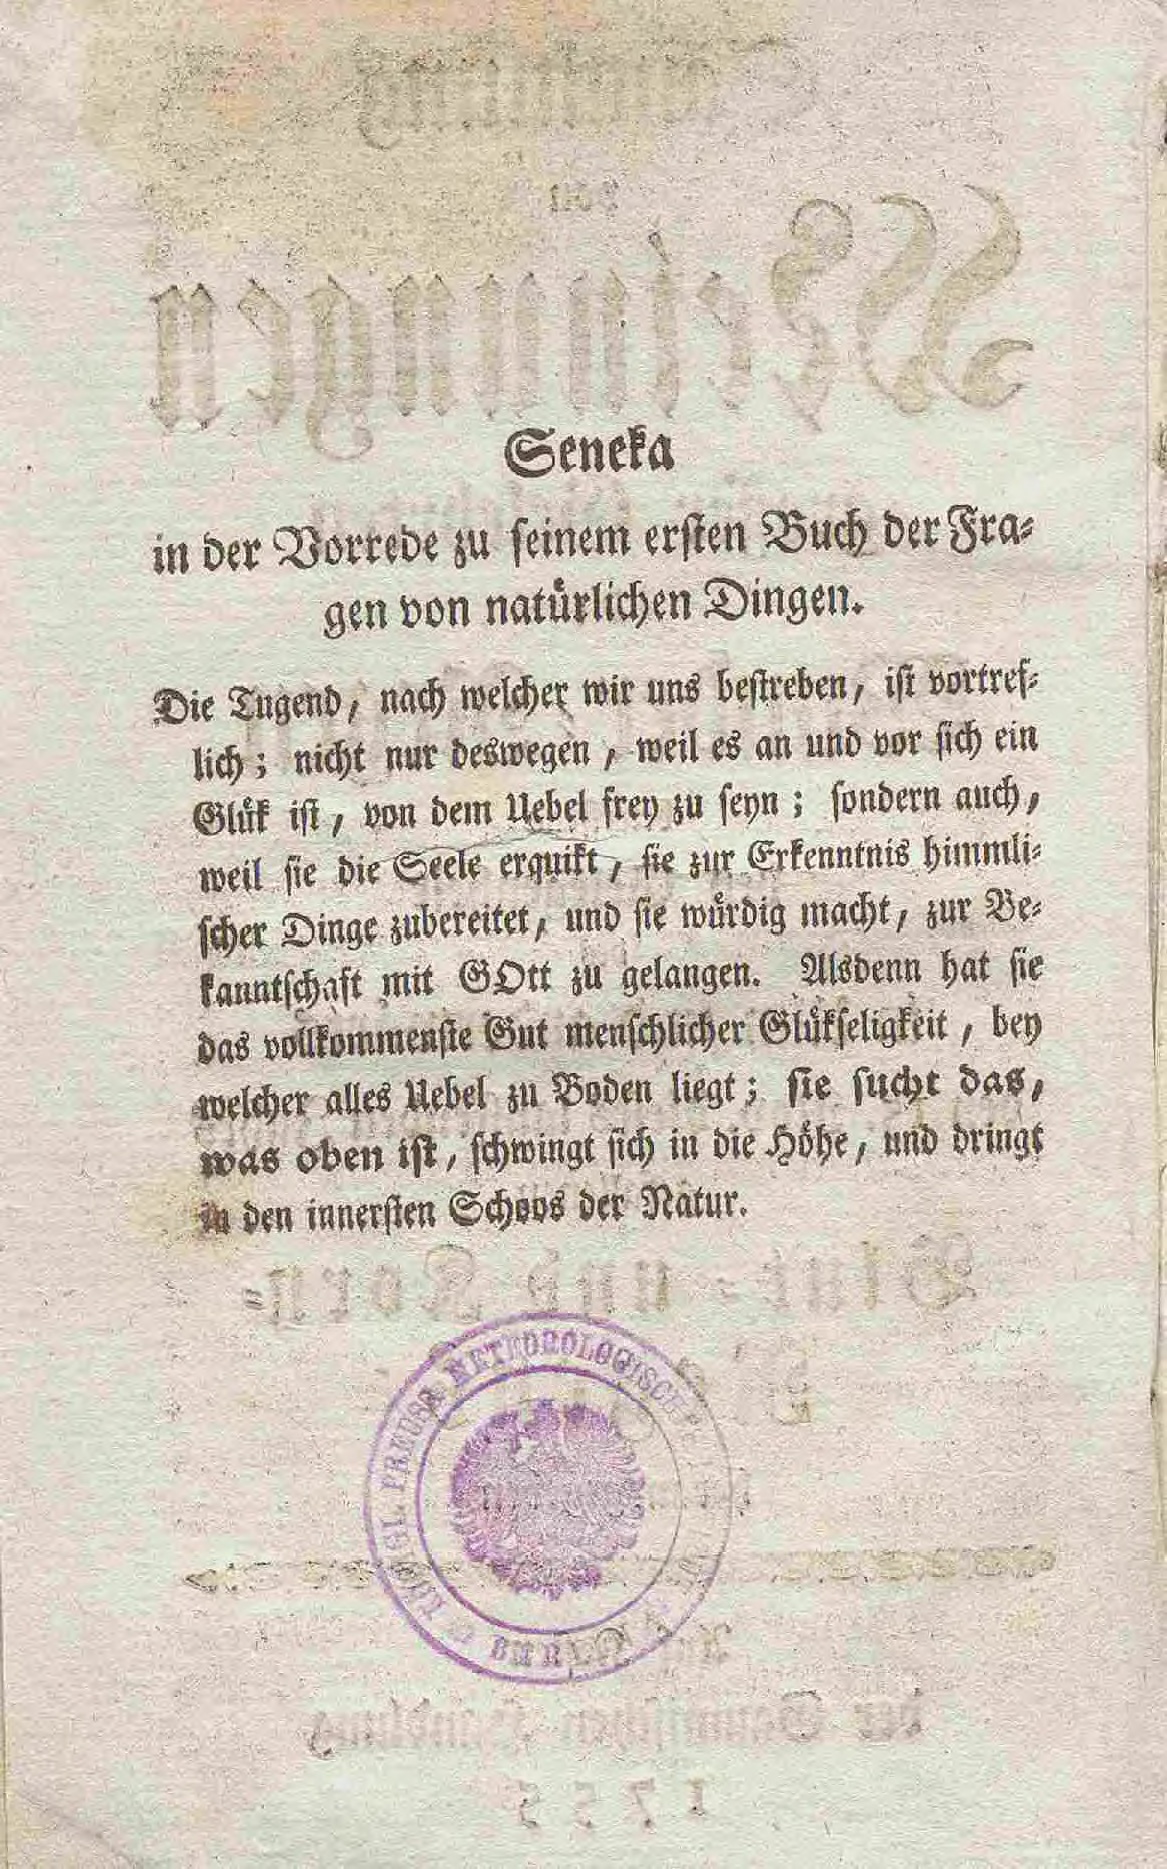 Seneka
in der Vorrede zu seinem ersten Buch der Fra-
gen von natürlichen Dingen.
Die Tugend, nach welcher wir uns bestreben, ist vortref-
lich; nicht nur deswegen, weil es an und vor sich ein
Glük ist, von dem Uebel frey zu seyn; sondern auch,
weil sie die Seele erquikt, sie zur Erkenntnis himmli-
scher Dinge zubereitet, und sie würdig macht, zur Be-
kanntschaft mit GOtt zu gelangen. Alsdenn hat sie
das vollkommenste Gut menschlicher Glükseligkeit, bey
welcher alles Uebel zu Boden liegt; sie sucht das,
was oben ist, schwingt sich in die Höhe, und dringt
in den innersten Schoos der Natur.
PREUSS METEOROLOGISCH
1755